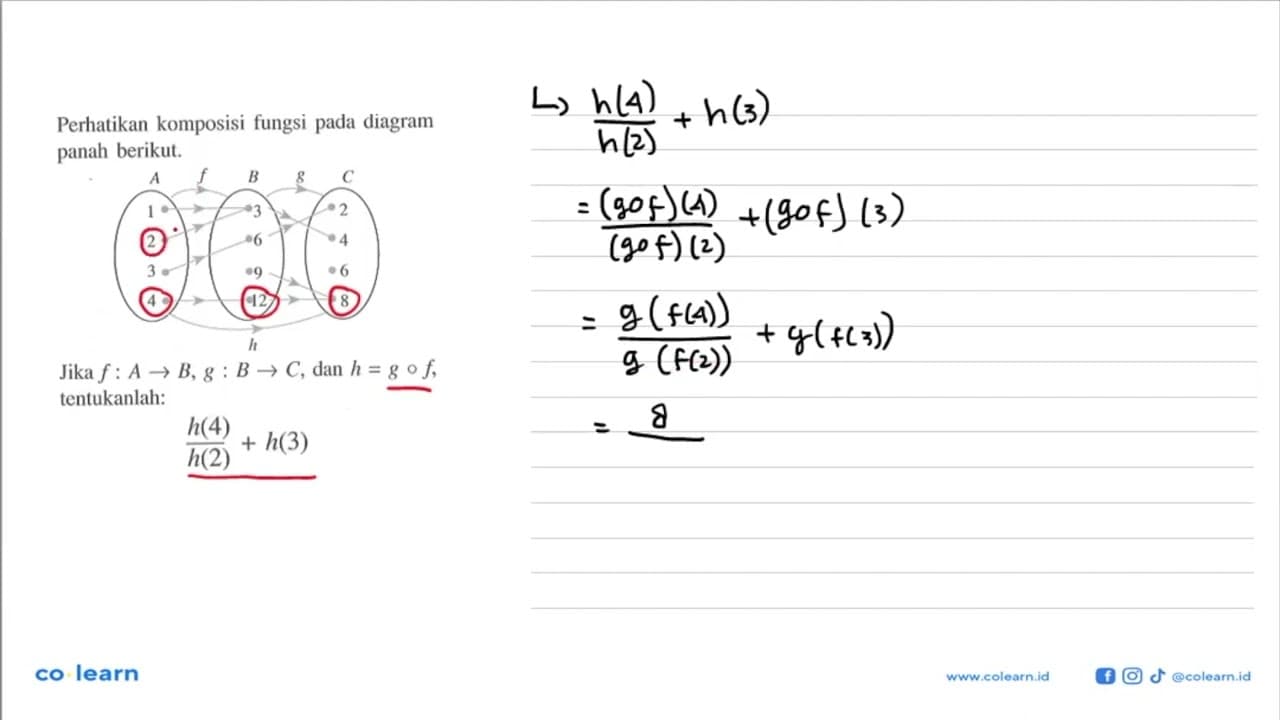 Perhatikan komposisi fungsi pada diagram
panah berikut.
A f B g C
1 3 2
2 6 4
3 9 6
4 12 8
h
Jika f : A → B, g : B → C, dan h = g ∘ f,
tentukanlah:
h(4)/h(2) + h(3)
↳ h(4)/h(2) + h(3)
= (g∘f)(4)/(g∘f)(2) + (g∘f)(3)
= g(f(4))/g(f(2)) + g(f(3))
= 8/
co learn
www.colearn.id
@colearn.id